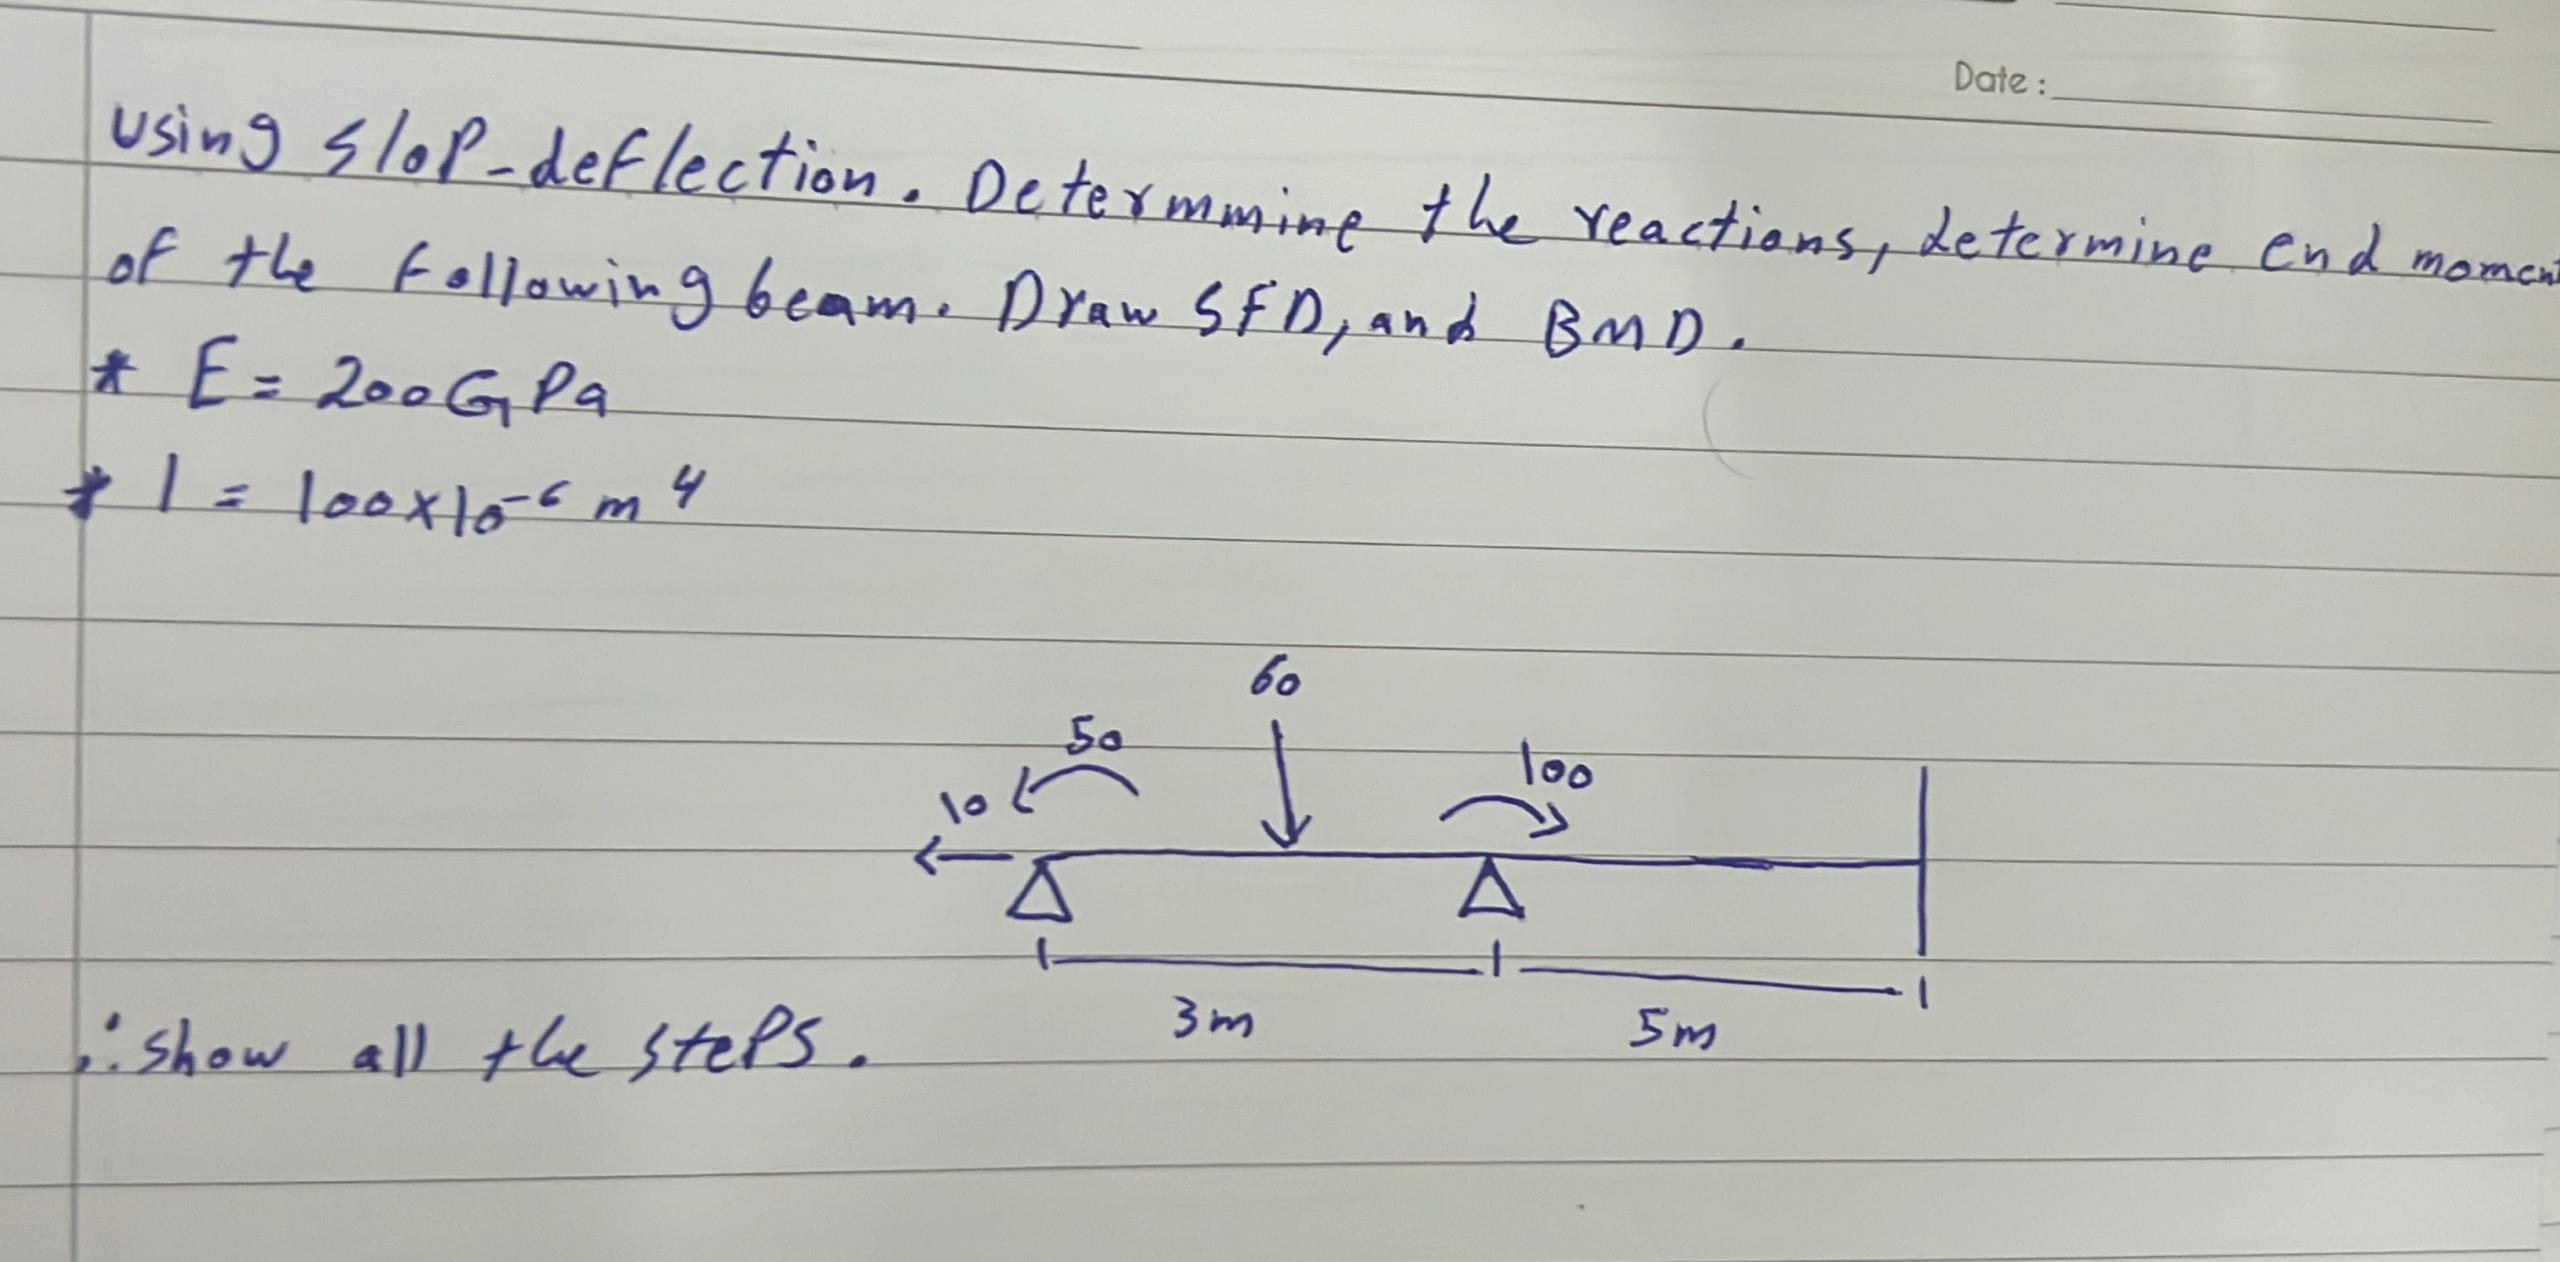 Date:
Using slop-deflection. Determmine the reactions, determine end moment
of the following beam. Draw SFD, and BMD.
* E = 200GPa
* I = 100x10-6 m4
60
50
100
10
3m
5m
∴ show all the steps.